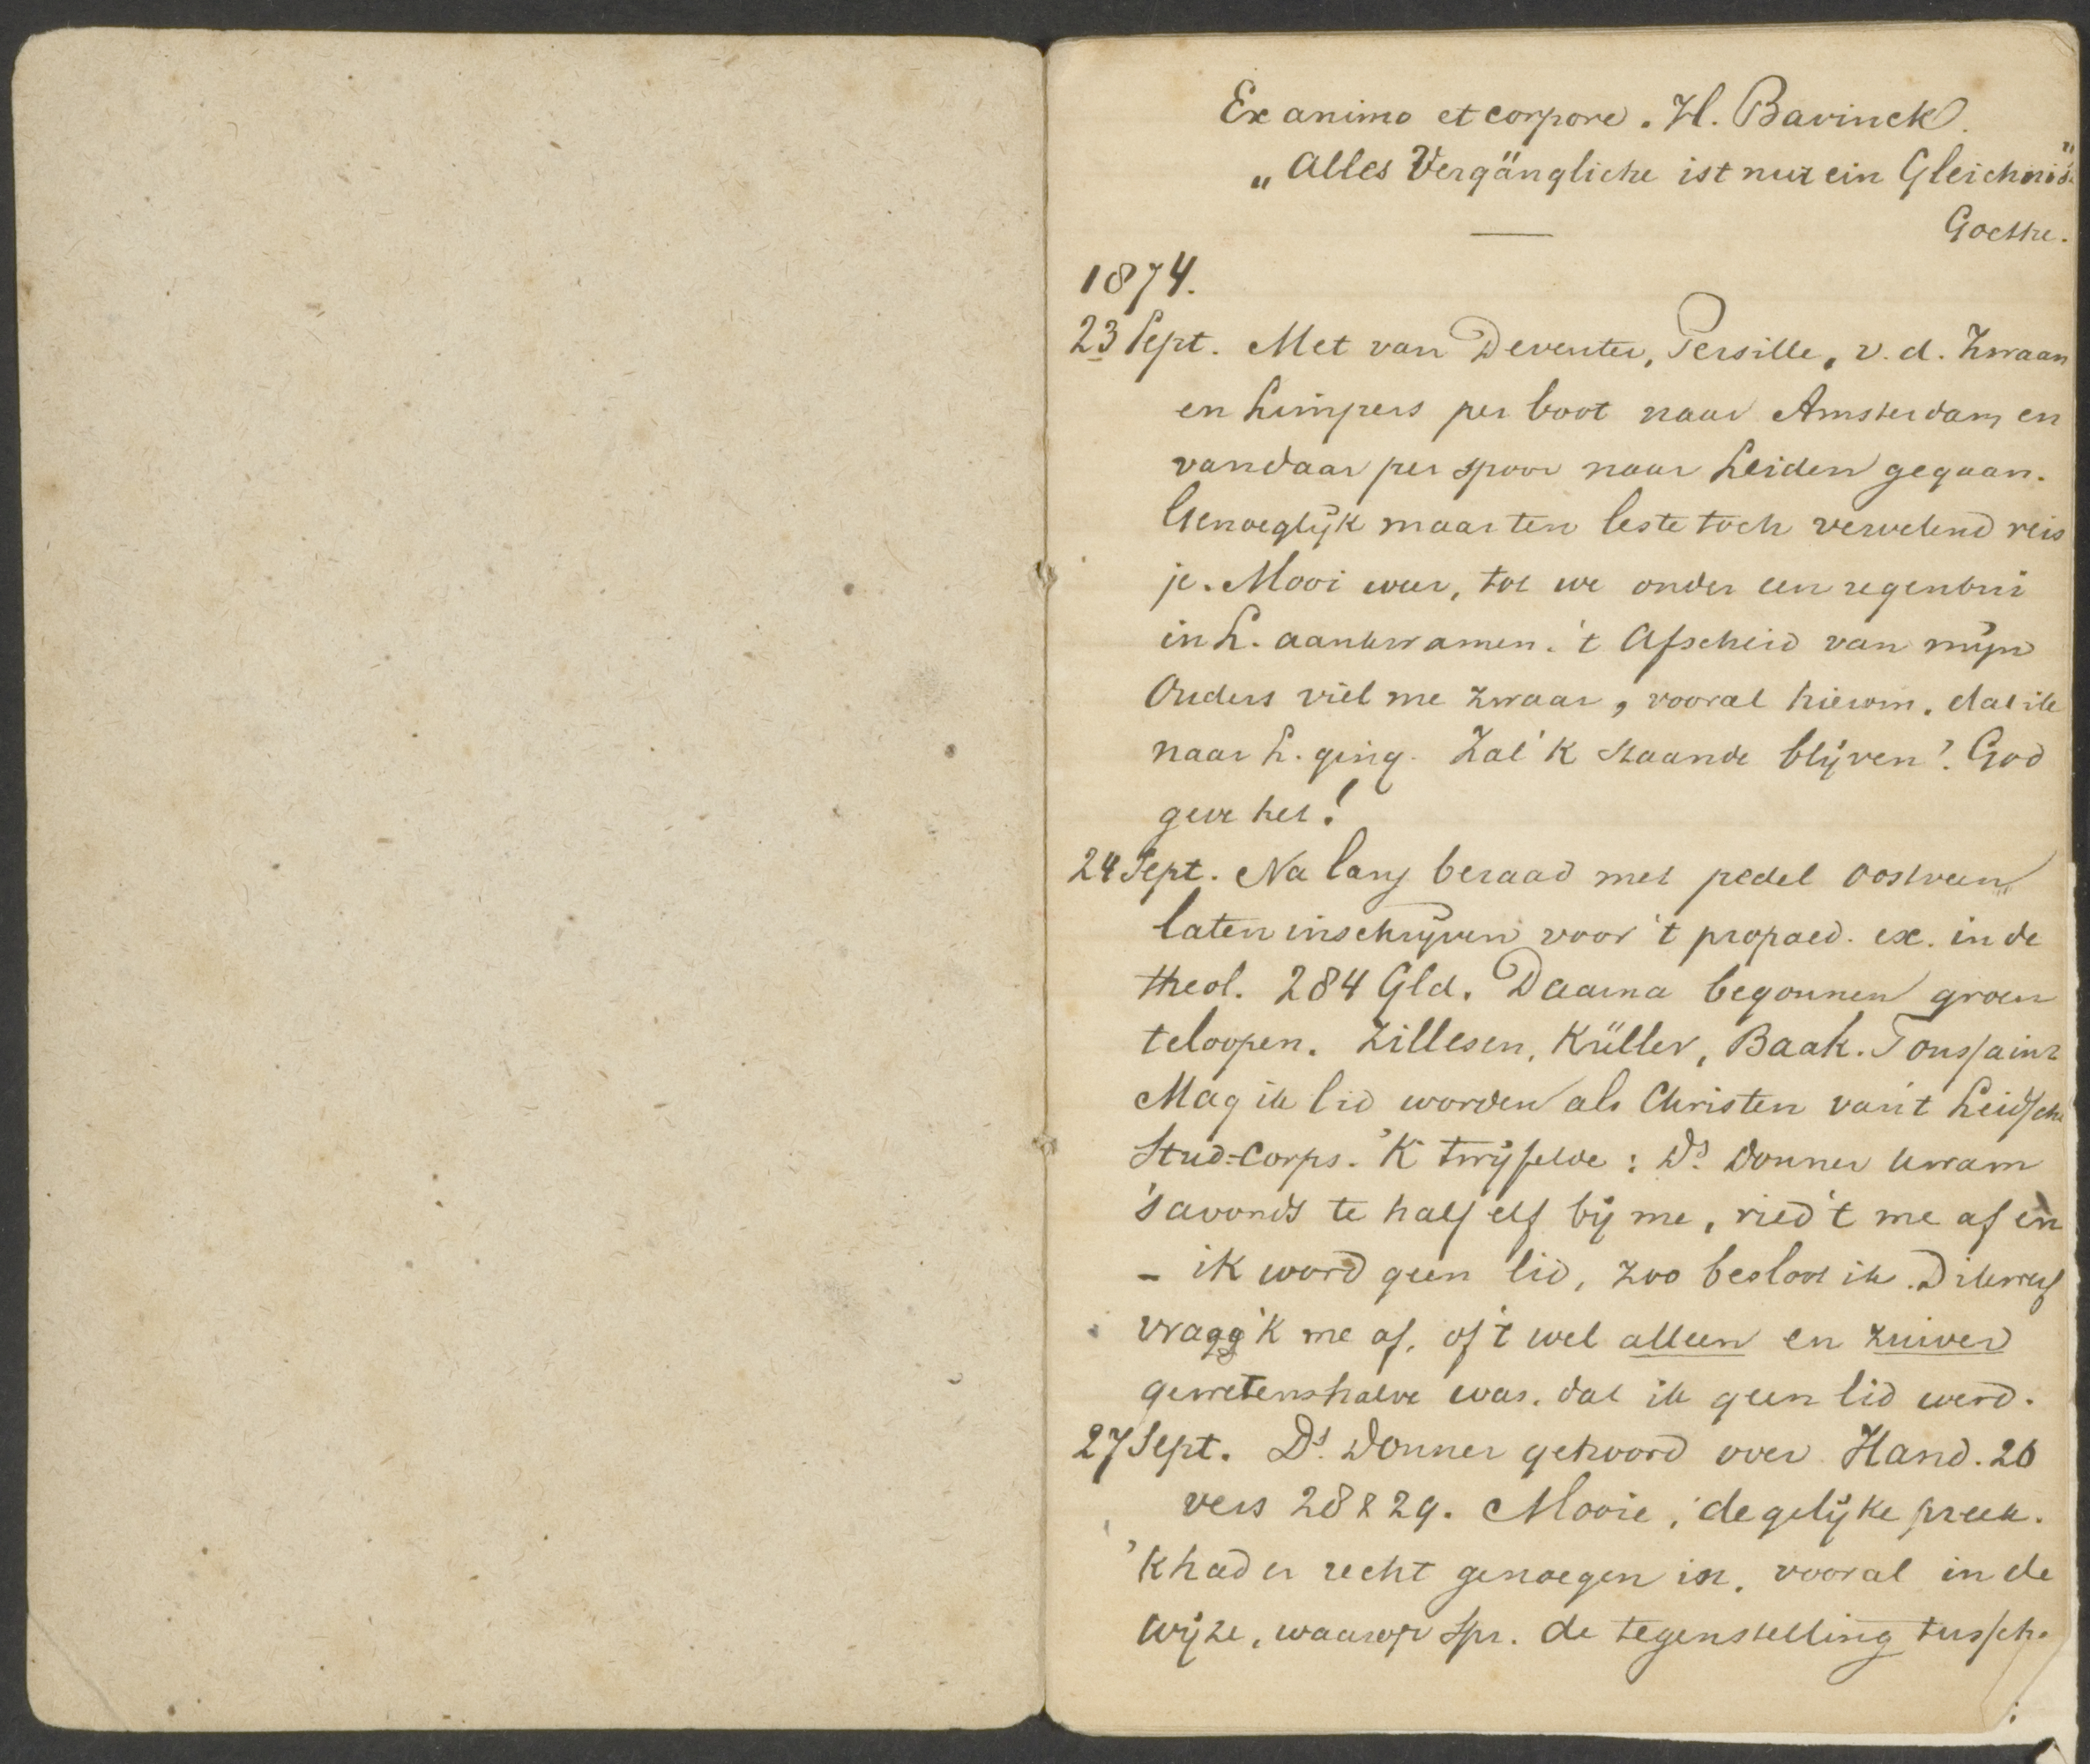 Ex animo et corpore. H. Bavinck.
„Alles Vergängliche ist nur ein Gleichnis"
Goethe.
1874.
23 Sept. Met van Deventer, Persille, v. d. Zwaan
en Limpers per boot naar Amsterdam en
vandaar per spoor naar Leiden gegaan.
Genoeglijk maar ten leste toch vervelend reis
je. Mooi weer, tot we onder een regenbui
in L. aankwamen. 't Afscheid van mijn
Ouders viel me zwaar, vooral hierom, dat ik
naar L. ging. Zal 'k staande blijven? God
geve het!
24 Sept. Na lang beraad met pedel Oostveen
laten inschrijven voor 't propaed. ex. in de
theol. 284 Gld. Daarna begonnen groen
te loopen. Zillesen, Küller, Baak. Toussaint
Mag ik lid worden als Christen van 't Leidsche
Stud-Corps. 'K twijfelde: Ds. Donner kwam
's avonds te half elf bij me, ried 't me af en
- ik word geen lid, zoo besloot ik. Dikwerf
vraag 'k me af, of 't wel alleen en zuiver
gewetenshalve was, dat ik geen lid werd.
27 Sept. Ds. Donner gehoord over Hand. 26
vers 28 & 29. Mooie, degelijke preek.
'k had er recht genoegen in, vooral in de
wijze, waarop Spr. de tegenstelling tussch.